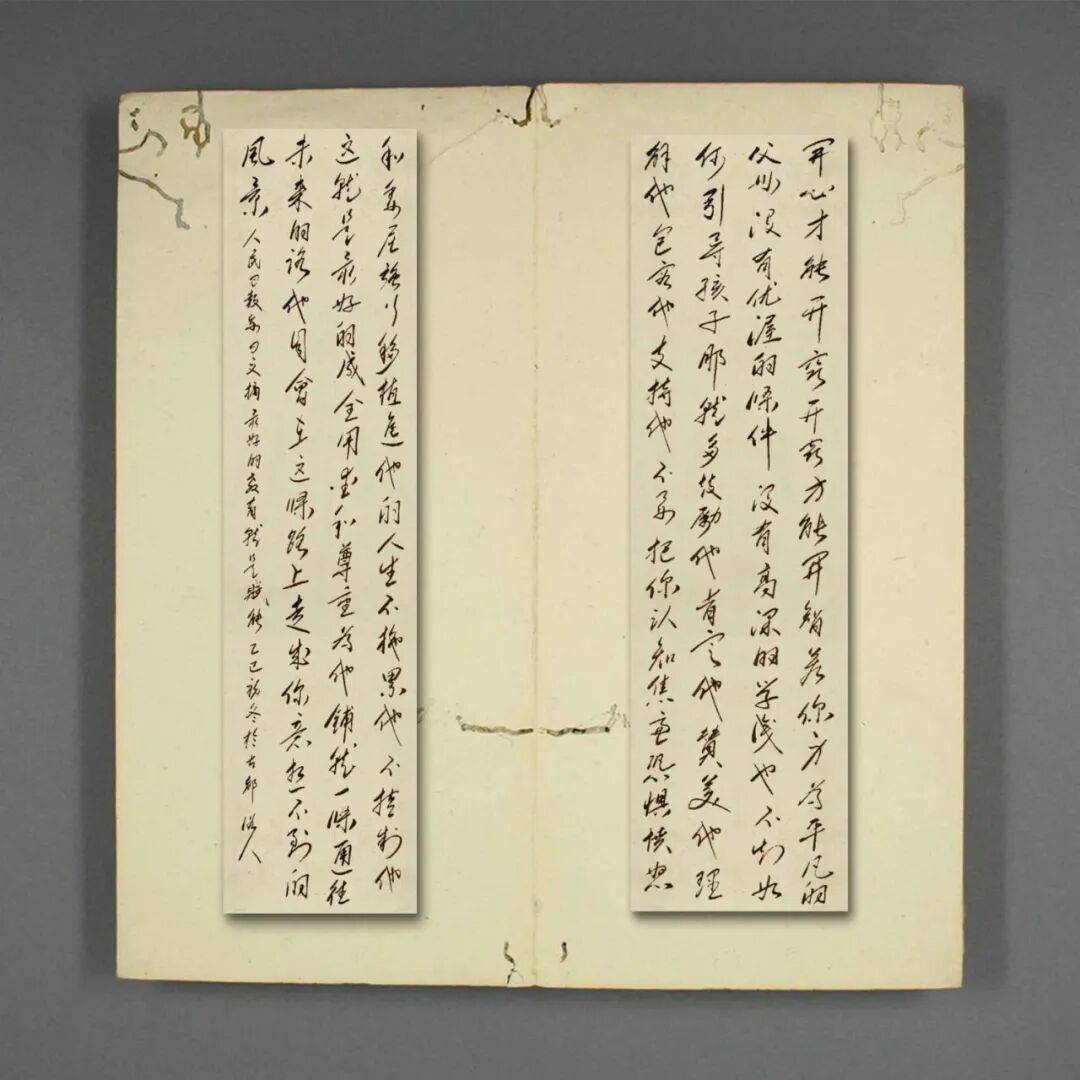 開心才能开窍开窍方能開智若你身为平凡的
父母没有优渥的條件没有高深的学识也不知如
何引导孩子那就多鼓励他肯定他赞美他理
解他包容他支持他不要把你认知焦虑恐惧愤怒
和委屈强行移植進他的人生不拖累他不控制他
这就是最好的成全用爱和尊重为他铺就一條通往
未来的路他自會在这條路上走出你意想不到的
風景人民日报每日文摘最好的教育就是赋能乙巳初冬於古人